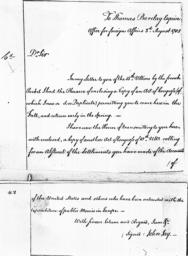 To Thomas Barclay Esquire
Office for foreign Affairs 2d August 1785
Sir
In my Letter to you of the 15th Ultimo by the french
Packet I had the Pleasure of enclosing a Copy of an Act of Congress of
which I now a Duplicate) permitting you to come here in the
Fall, and return early in the Spring.
I have now the Honor of transmitting to you here
with enclosed, a Copy of another Act of Congress of calling
for an Abstract of the Settlements you have made of the Accounts
of
of the United States and others who have been entrusted with the
expenditure of public Monies in Europe.
With great Esteem and Regard, I am &c.
signed John Jay.